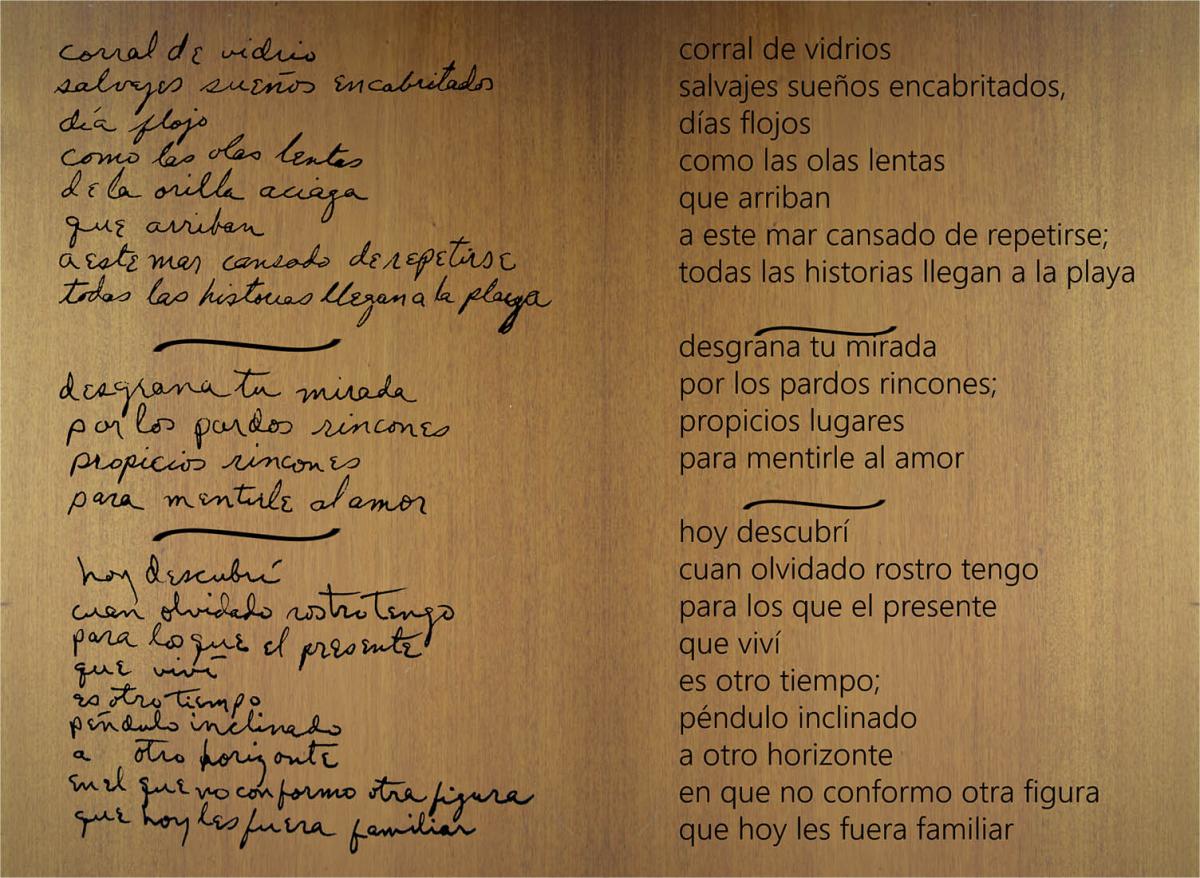 corral de vidrio
salvajes sueños encabritados
día flojo
como las olas lentas
de la orilla aciaga
que arriban
a este mar cansado de repetirse
todas las historias llegan a la playa
desgrana tu mirada
por los pardos rincones
propicios rincones
para mentirle al amor
hoy descubrí
cuan olvidado rostro tengo
para los que el presente
que viví
es otro tiempo
péndulo inclinado
a otro horizonte
en el que no conformo otra figura
que hoy les fuera familiar
corral de vidrios
salvajes sueños encabritados,
días flojos
como las olas lentas
que arriban
a este mar cansado de repetirse;
todas las historias llegan a la playa
desgrana tu mirada
por los pardos rincones;
propicios lugares
para mentirle al amor
hoy descubrí
cuan olvidado rostro tengo
para los que el presente
que viví
es otro tiempo;
péndulo inclinado
a otro horizonte
en que no conformo otra figura
que hoy les fuera familiar